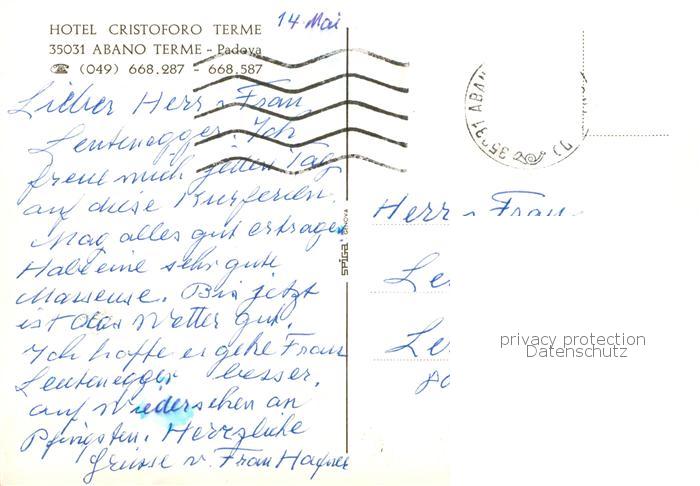 HOTEL CRISTOFORO TERME
35031 ABANO TERME - Padova
☎ (049) 668.287 - 668.587
14 Mai
Lieber Herr u Frau
Leutenegger. Ich
freue mich jeden Tag
auf diese Kurferien.
Mag alles gut ertragen
Habe eine sehr gute
Masseuse. Bis jetzt
ist das Wetter gut.
Ich hoffe es gehe Frau
Leutenegger besser.
auf Wiedersehen an
Pfingsten. Herzliche
Grüsse v. Frau Hafner
SPIGA GENOVA
35031 ABAN
Herr u Frau
Le
Le
80
privacy protection
Datenschutz